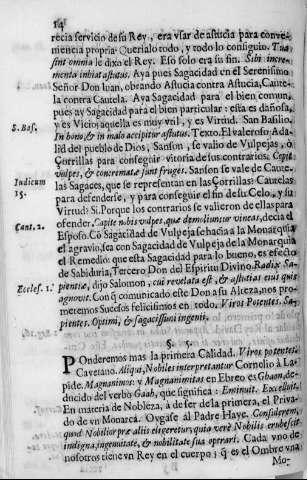 14
recia servicio de su Rey, era vsar de astucia para conve-
niencia propria. Querialo todo, y todo lo consiguio. Tua
sint omnia le dixo el Rey. Eso solo era su fin. Sibi incre-
menta inhiat astutus. Aya pues Sagacidad en el Serenisimo
Señor Don Iuan, obrando Astucia contra Astucia, Caute-
la contra Cautela. Aya Sagacidad para el bien comun,
pues ay Sagacidad para el bien particular: esta es dañosa,
y es Vicio; aquella es muy vtil, y es Virtud. San Basilio.
S. Bas.
In bono, & in malo accipitur astutus. Texto. El valeroso Ada-
lid del pueblo de Dios, Sanson, se valio de Vulpejas, ò
Çorrillas para conseguir vitoria de sus contrarios. Cepit
vulpes, & concrematæ sunt fruges. Sanson se vale de Caute-
Indicum
15.
las Sagaces, que se representan en las Çorrillas: Cautelas
para defenderse, y para conseguir el fin de su Celo, y su
Virtud: Si. Porque los contrarios se valieron de ellas para
Cant. 2.
ofender. Capite nobis vulpes, quæ demoliuntur vineas, decia el
Esposo. Cõ Sagacidad de Vulpeja se hacia a la Monarquia
el agravio, sea con Sagacidad de Vulpeja de la Monarquia
el Remedio: que esta Sagacidad para lo bueno, es efecto
de Sabiduria, Tercero Don del Espiritu Divino. Radix Sa-
Eccles. 1.
pientiæ, dijo Salomon, cui revelata est, & astutias eius quis
agnovit. Con q̃ comunicado este Don a su Alteza, nos pro-
meremos Sucesos felicisimos en todo. Viros Potentes. Sa-
pientes. Optimi, & sagacissimi ingenii.
§. 5.
POnderemos mas la primera Calidad. Viros potentes.
Cayetano. Aliqui, Nobiles interpretantur Cornelio à La-
pide. Magnanimos: y Magnanimitas en Ebreo es Gbaon, de-
ducido del verbo Gaab, que significa: Eminuit. Excelluit.
En materia de Nobleza, à de ser de la primera, el Priva-
do de vn Monarca. Oygase al Padre Haye. Consulerem,
quod Nobiliores aliis eligeretur, quia verè Nobilis erubescit
indigna, ingenuitate, & nobilitate sua operari. Cada vno de
nosotros tiene vn Rey en el cuerpo; q̃ es el Ombre vna
Mo-